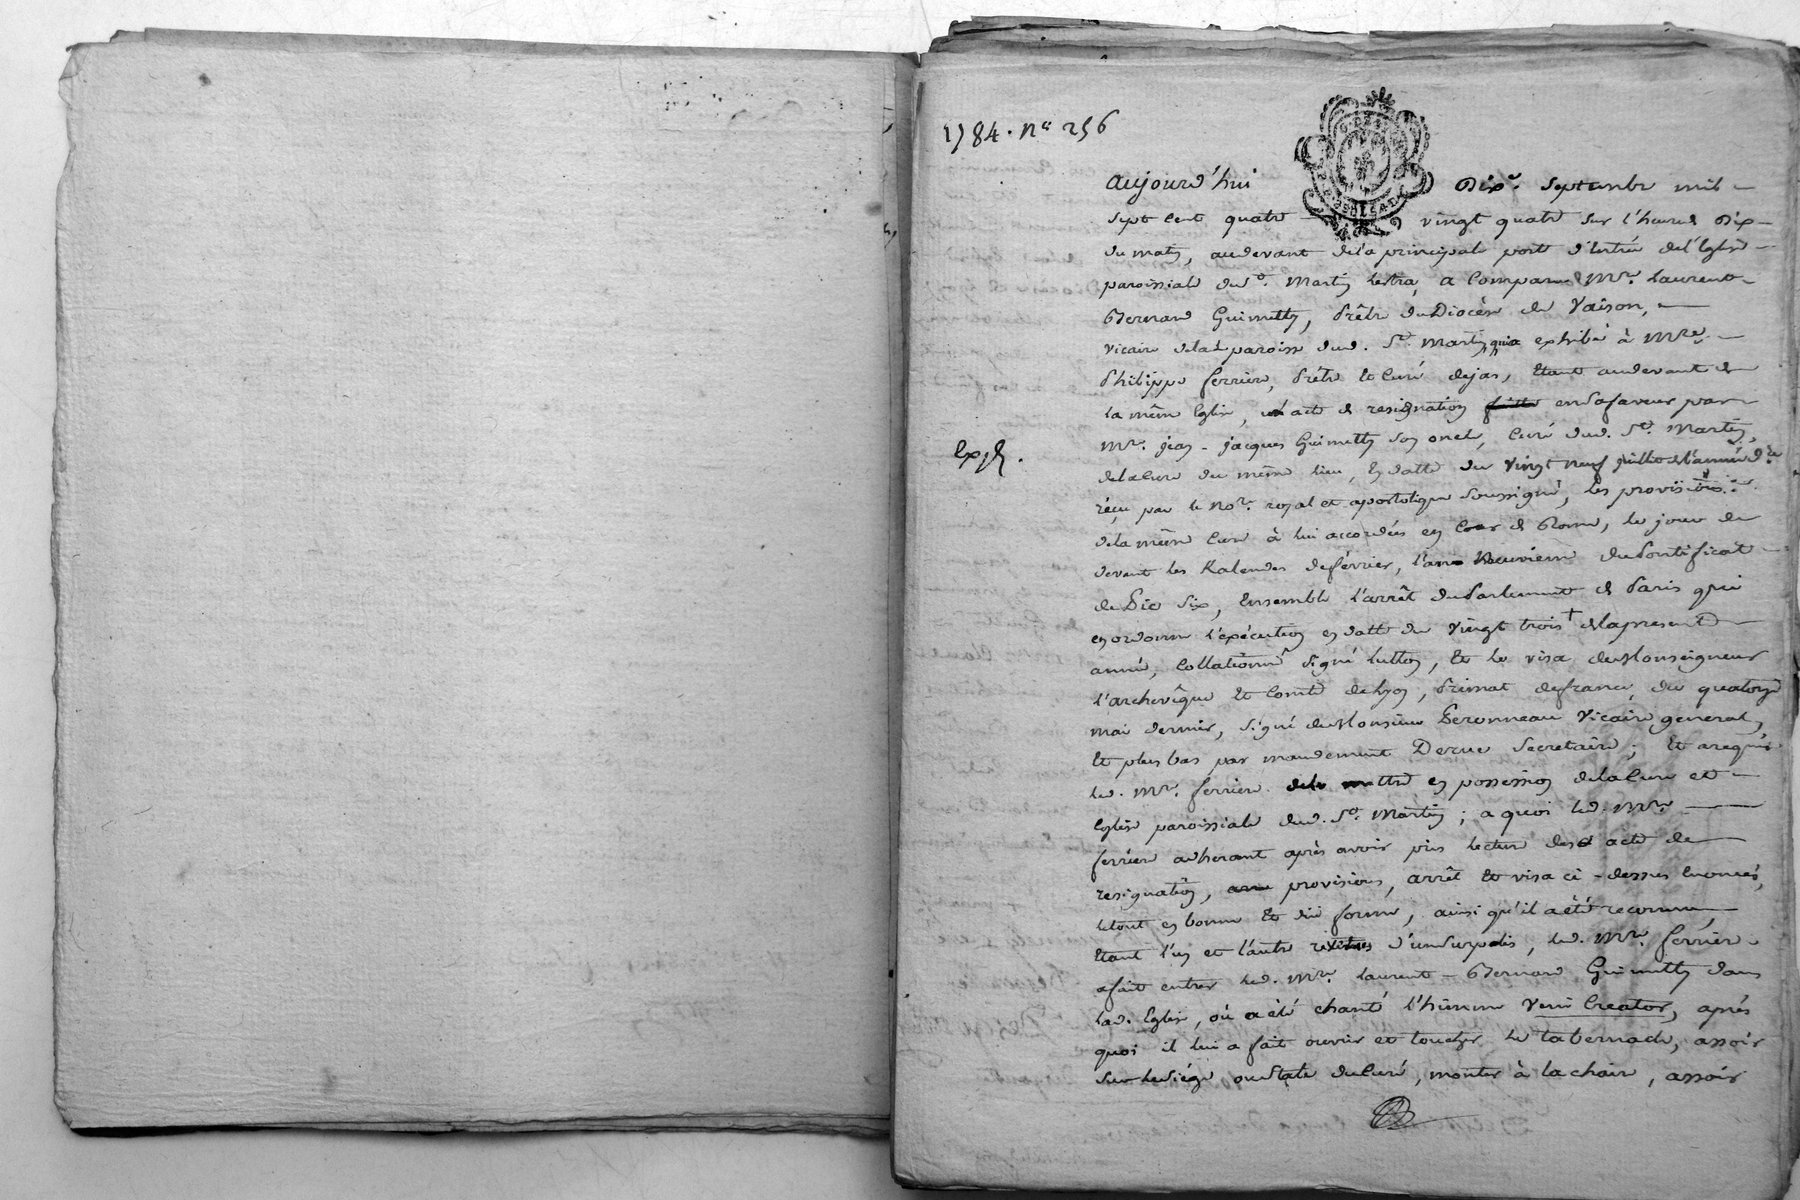 1784. n° 256
aujourd'hui Dixe. septembre mil
sept cent quatre vingt quatre sur l'heure de Dix
du matin, audevant dela principale porte d'Entrée de l'Eglise
paroissiale de St. Martin lestra, a Comparu Mre. Laurent
Bernard Guimetty, Prêtre du Diocèse de Vaison,
vicaire delad paroisse dud. St. Martin, qui a exhibé à Mre.
Philippe ferrier, Prêtre Et Curé dejas, Etant audevant de
la même Eglise, un acte de resignation en sa faveur par
Mre. jean-jacques Guimetty son oncle, Curé dud. St. Martin,
Exp.
dela Cure du même lieu, En datte du vingt neuf juillet de l'année dre.
réçu par le Nore. royal et apostolique soussigné, les provisions
dela même Cure à lui accordées en Cour de Rome, le jour de
devant les Kalendes de février, l'an neuvieme du Pontificat
de Pie Six, Ensemble l'arrêt du Parlement de Paris qui
en ordonne l'exécution en datte du vingt trois + de la presente
année, Collationné signé lutton, Et le visa de Monseigneur
l'archevêque Et Comte de Lyon, Primat de france, du quatorze
mai dernier, signé de Monsieur Peronneau Vicaire general,
Et plus bas par mandement Derue Secretaire; Et a requis
led. Mre. ferrier de le mettre en possession dela Cure et
Eglise paroissiale dud. St. Martin; a quoi led. Mre.
ferrier adherant après avoir pris lecture desd acte de
resignation, provisions, arrêt Et visa ci-dessus Enoncés,
le tout en bonne Et due forme, ainsi qu'il a été reconnu,
Etant l'un et l'autre revêtus d'un surplis, led. Mre. ferrier
a fait entrer led. Mre. Laurent-Bernard Guimetty dans
lad. Eglise, où a été chanté l'himne Veni Creator, après
quoi il lui a fait ouvrir et toucher le tabernacle, assoir
sur le siége ou Stale du Curé, monter à la chaire, assoir